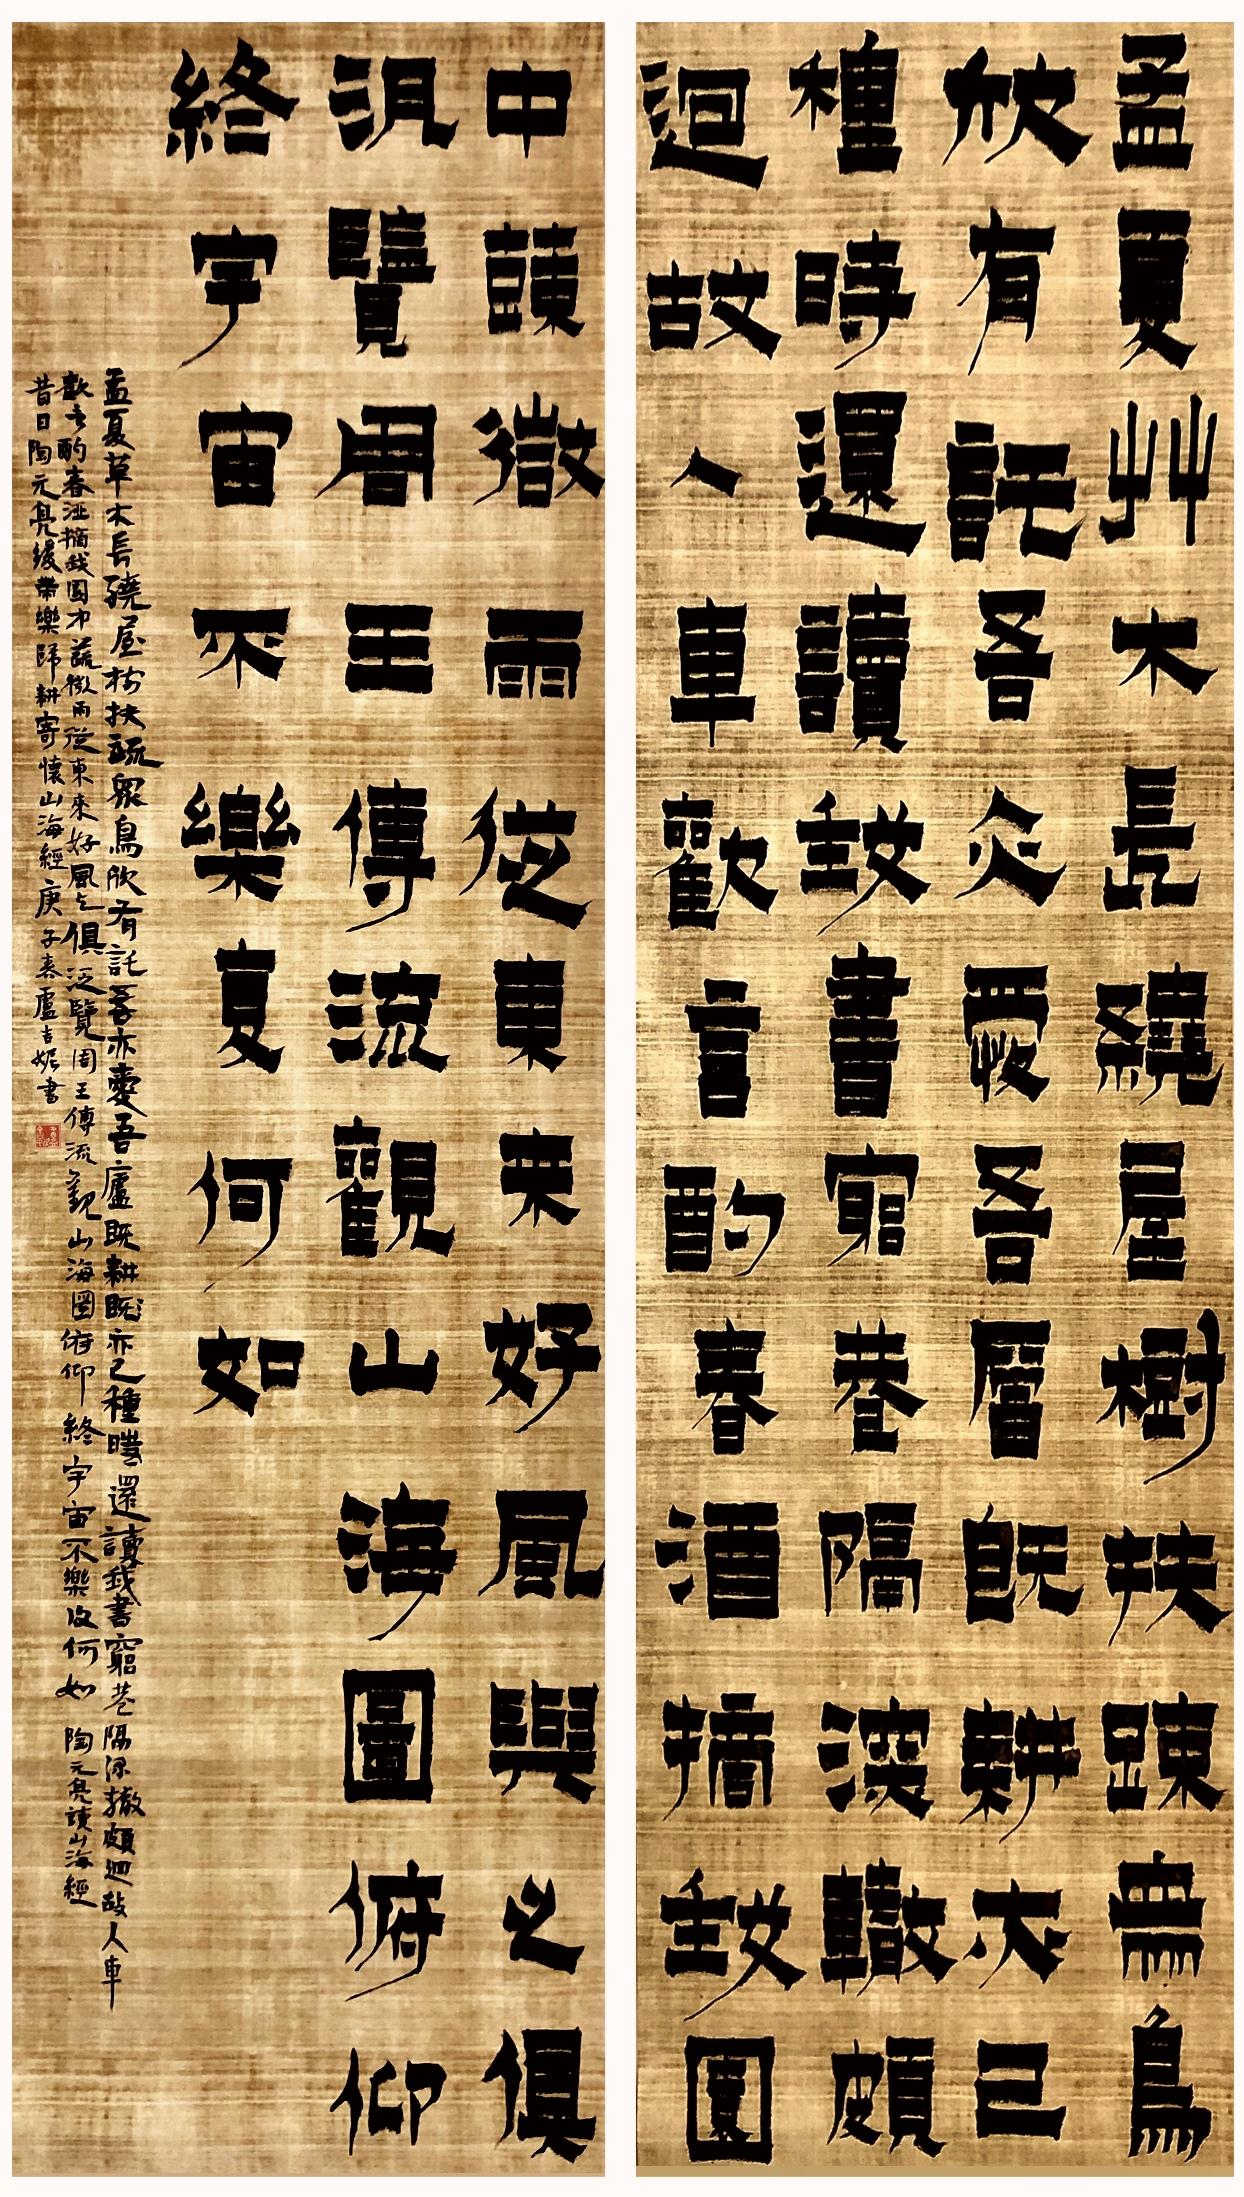 孟夏艸木長繞屋樹扶踈眾鳥
欣有託吾亦愛吾廬既耕亦已
種時還讀我書窮巷隔深轍頗
迴故人車歡言酌春酒摘我園
中蔬微雨從東来好風與之俱
汎覽周王傳流觀山海圖俯仰
終宇宙不樂復何如
孟夏草木長繞屋樹扶疏眾鳥欣有託吾亦愛吾廬既耕既亦已種時還讀我書窮巷隔深轍頗迴故人車
歡言酌春酒摘我園中蔬微雨從東來好風与俱泛覽周王傳流觀山海圖俯仰終宇宙不樂復何如 陶元亮讀山海經
昔日陶元亮緩帶樂歸耕寄懷山海經庚子春盧吉妮書